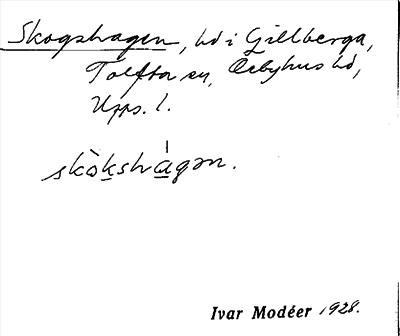 Skogshagen, hd i Gillberga,
Tolfta sn, Örbyhus hd,
Upps. l.
skò̀kshágən.
Ivar Modéer 1928.